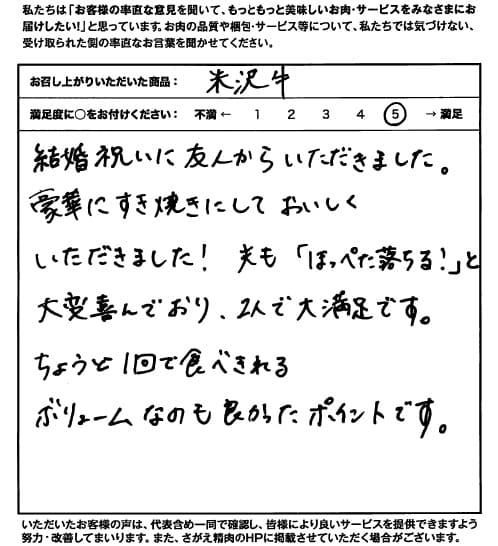 私たちは「お客様の率直な意見を聞いて、もっともっと美味しいお肉・サービスをみなさまにお
届けしたい!」と思っています。お肉の品質や梱包・サービス等について、私たちでは気づけない、
受け取られた側の率直なお言葉を聞かせてください。
お召し上がりいただいた商品： 米沢牛
満足度に○をお付けください： 不満 ← 1 2 3 4 5 → 満足
結婚祝いに友人からいただきました。
豪華にすき焼きにしておいしく
いただきました! 夫も「ほっぺた落ちる!」と
大変喜んでおり、2人で大満足です。
ちょうど1回で食べきれる
ボリュームなのも良かったポイントです。
いただいたお客様の声は、代表含め一同で確認し、皆様により良いサービスを提供できますよう
努力・改善してまいります。また、さがえ精肉のHPに掲載させていただく場合がございます。